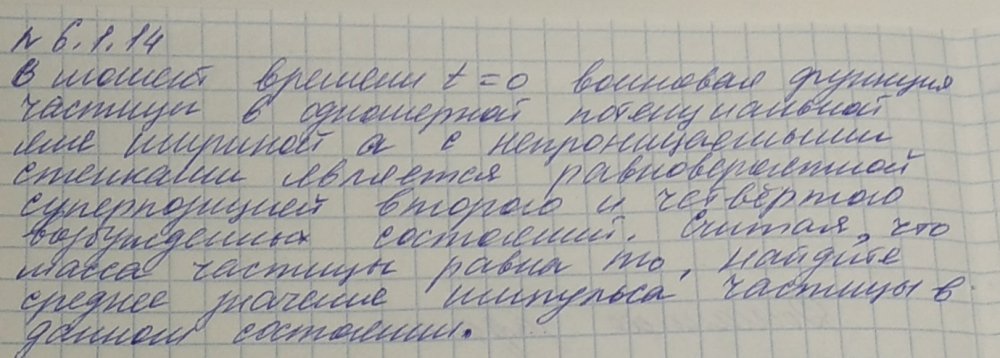 № 6.1.14
В момент времени t = 0 волновая функция
частицы в одномерной потенциальной
яме шириной a с непроницаемыми
стенками является равновероятной
суперпозицией второго и четвёртого
возбужденных состояний. Считая, что
масса частицы равна m₀, найдите
среднее значение импульса частицы в
данном состоянии.